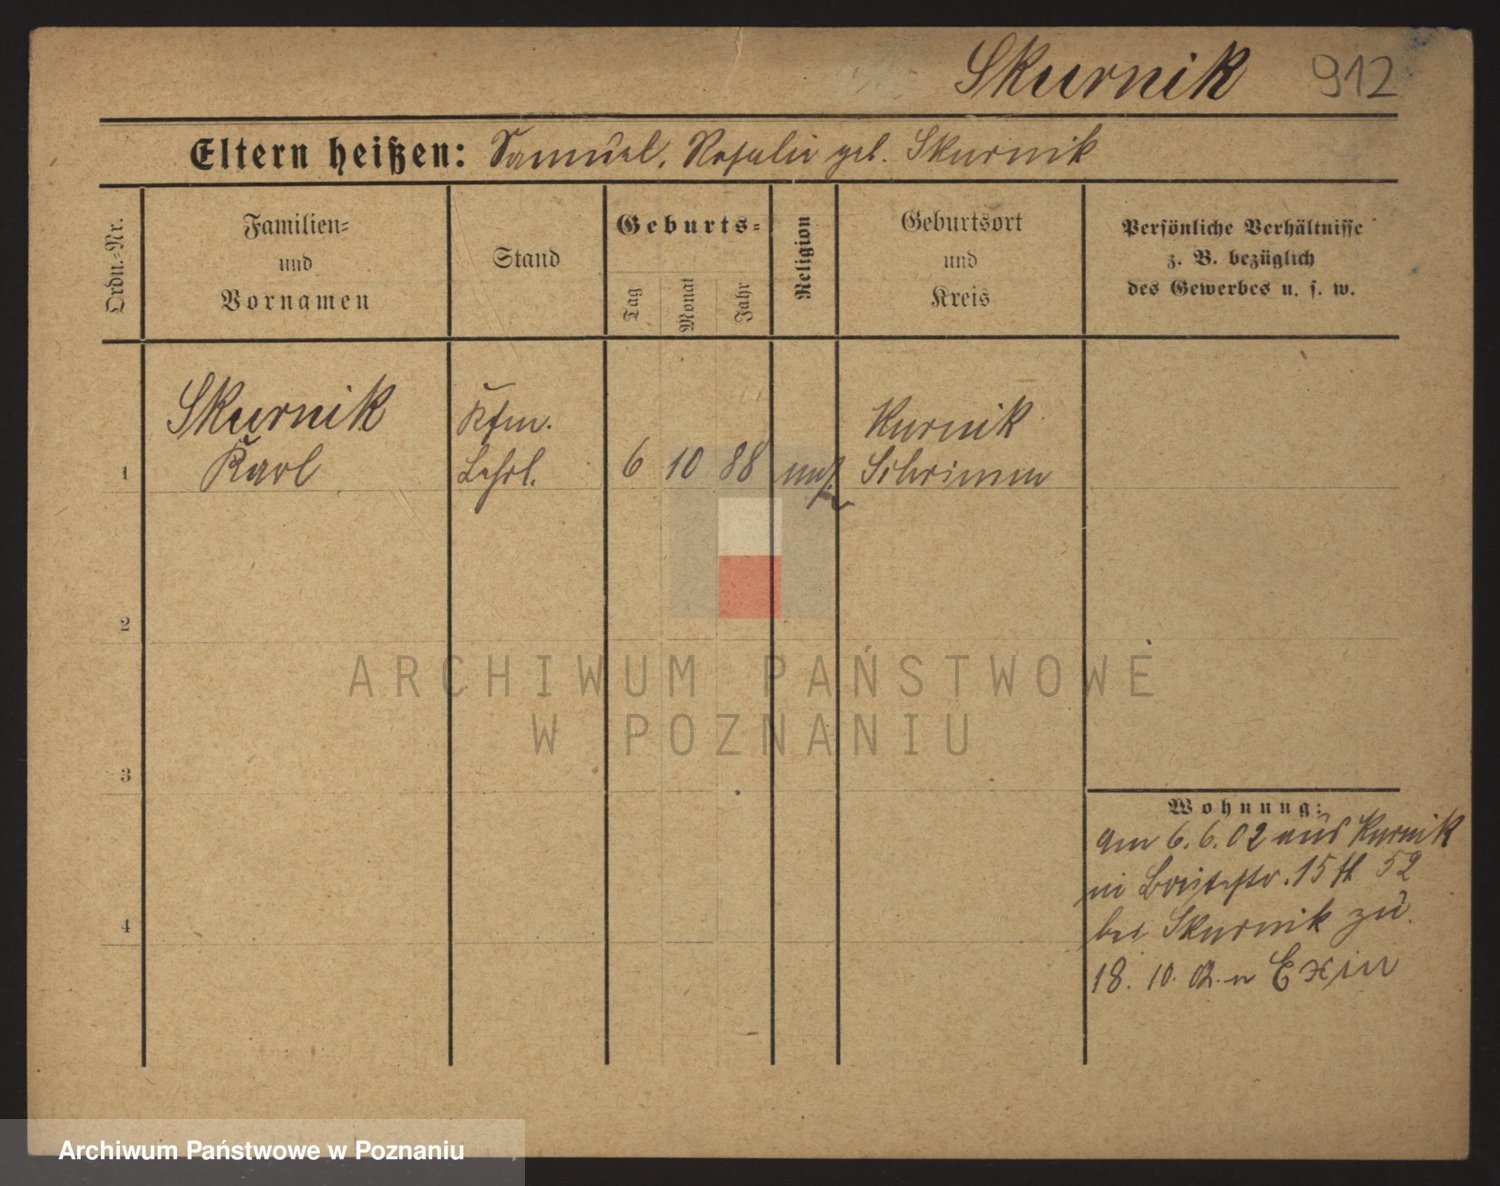 Skurnik 912
Eltern heißen: Samuel, Rosalie geb. Skurnik
Ordn.-Nr.
Familien-
und
Vornamen
Stand
Geburts-
Tag
Monat
Jahr
Religion
Geburtsort
und
Kreis
Persönliche Verhältnisse
z. B. bezüglich
des Gewerbes u. s. w.
Skurnik Kfm. Kurnik
1 Karl Lehrl. 6 10 88 mos. Schrimm
2
3
4
ARCHIWUM PAŃSTWOWE
W POZNANIU
Wohnung:
am 6.6.02 aus Kurnik
in Breitestr. 15
bei Skurnik zu
18. 10. 02. n Exin
Archiwum Państwowe w Poznaniu